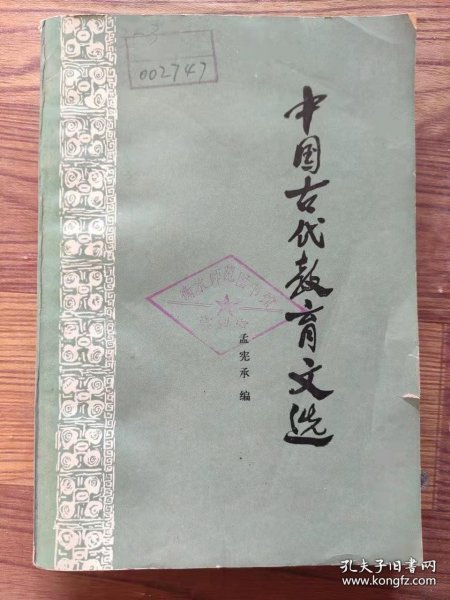 3
002747
中国古代教育文选
衡水师范图书馆
孟宪承 编
孔夫子旧书网
www.kongfz.com